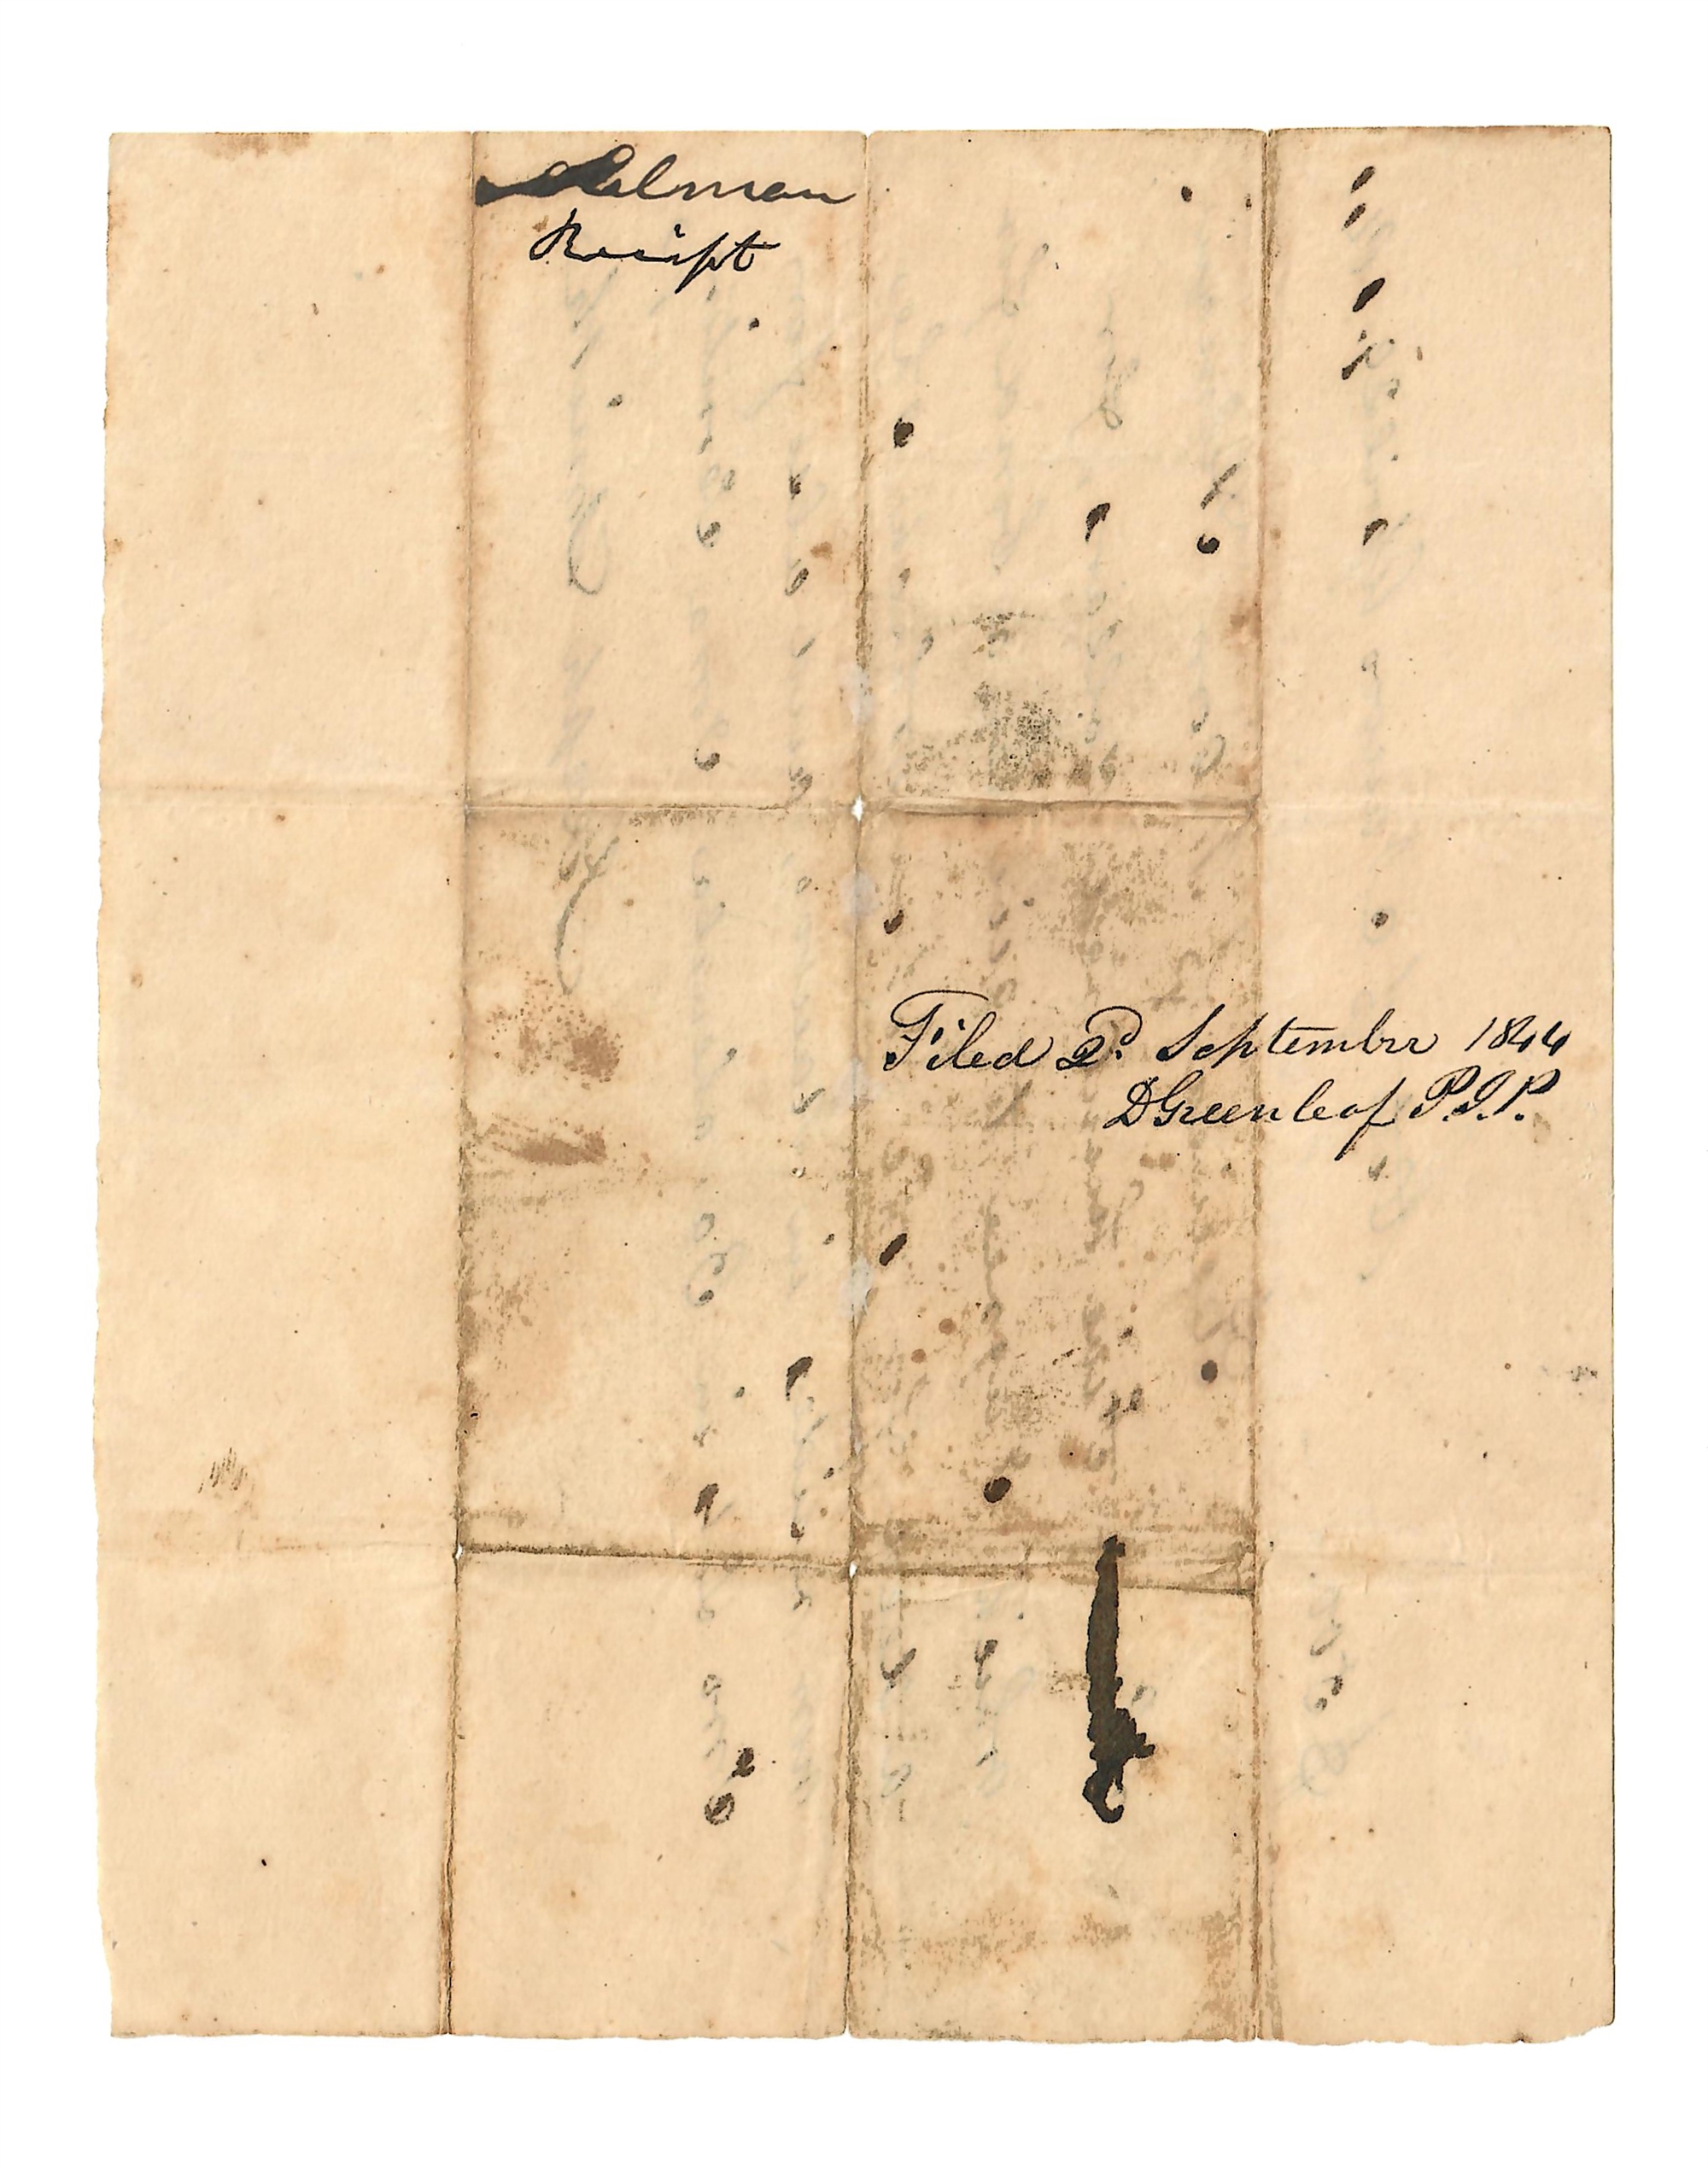 Selman
Receipt
Filed 2d September 1844
DGreenleaf P.J.P.